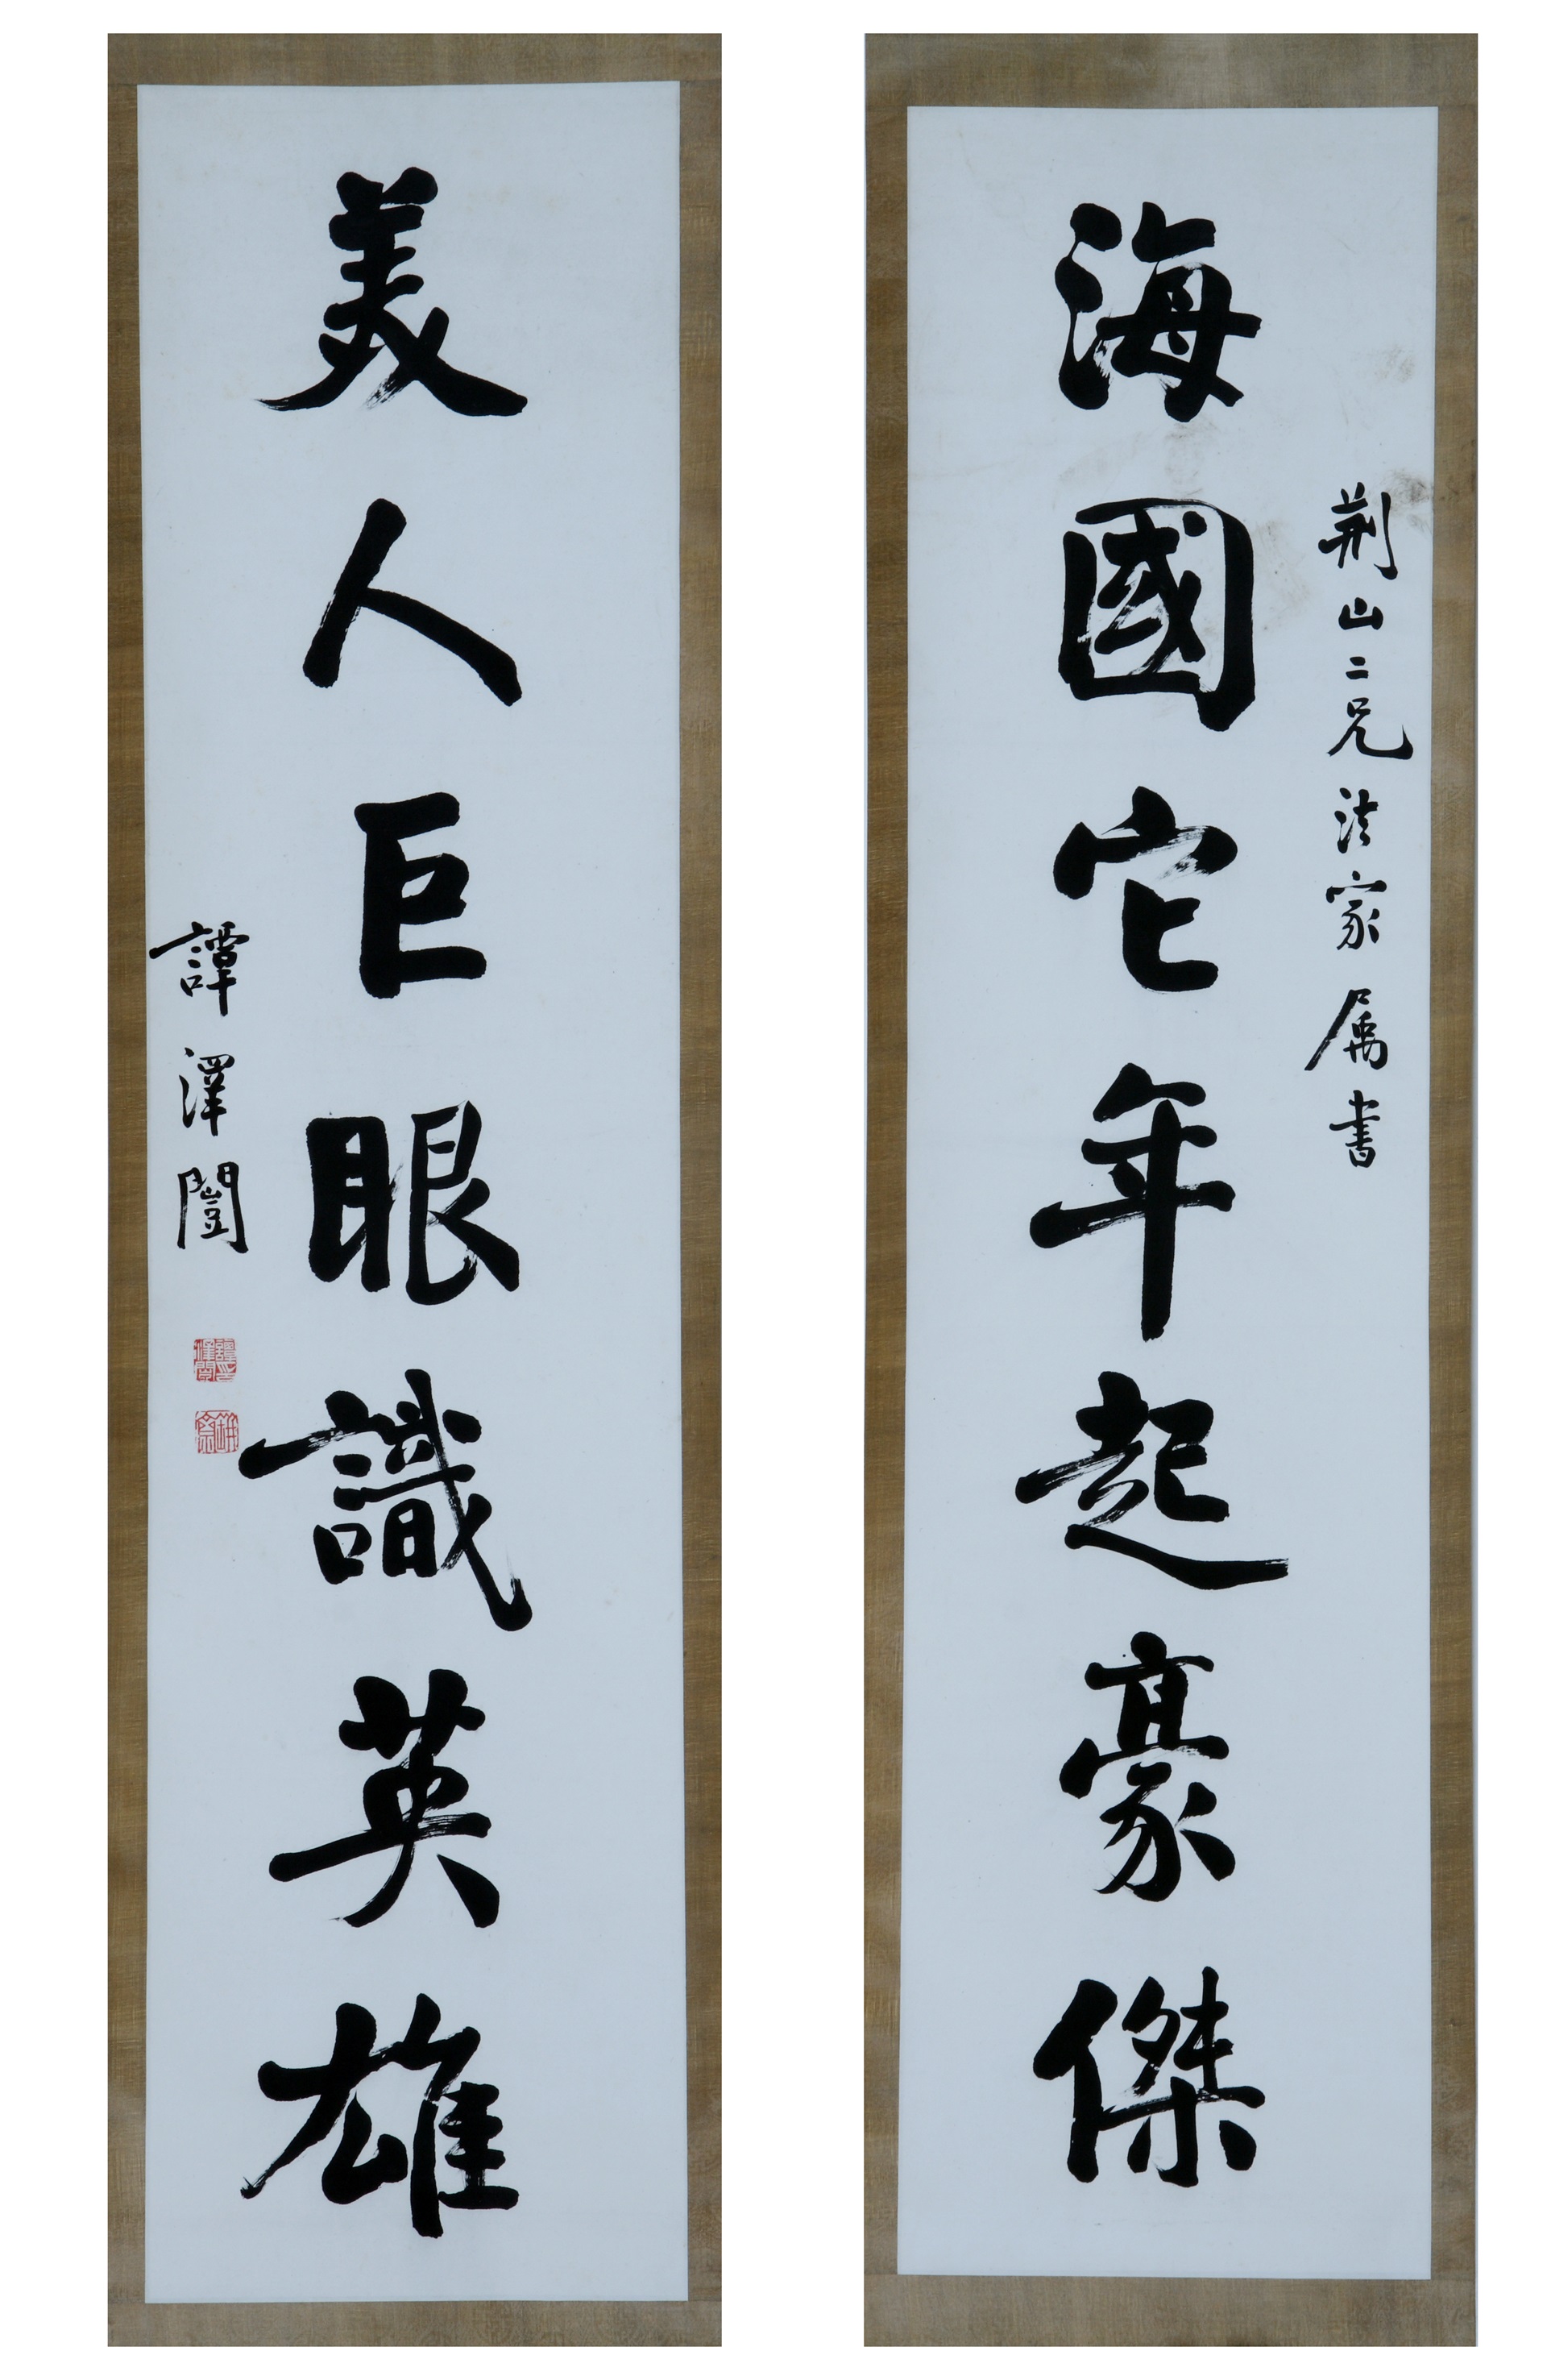 荆山二兄法家属書
海國它年起豪傑
美人巨眼識英雄
譚澤闓